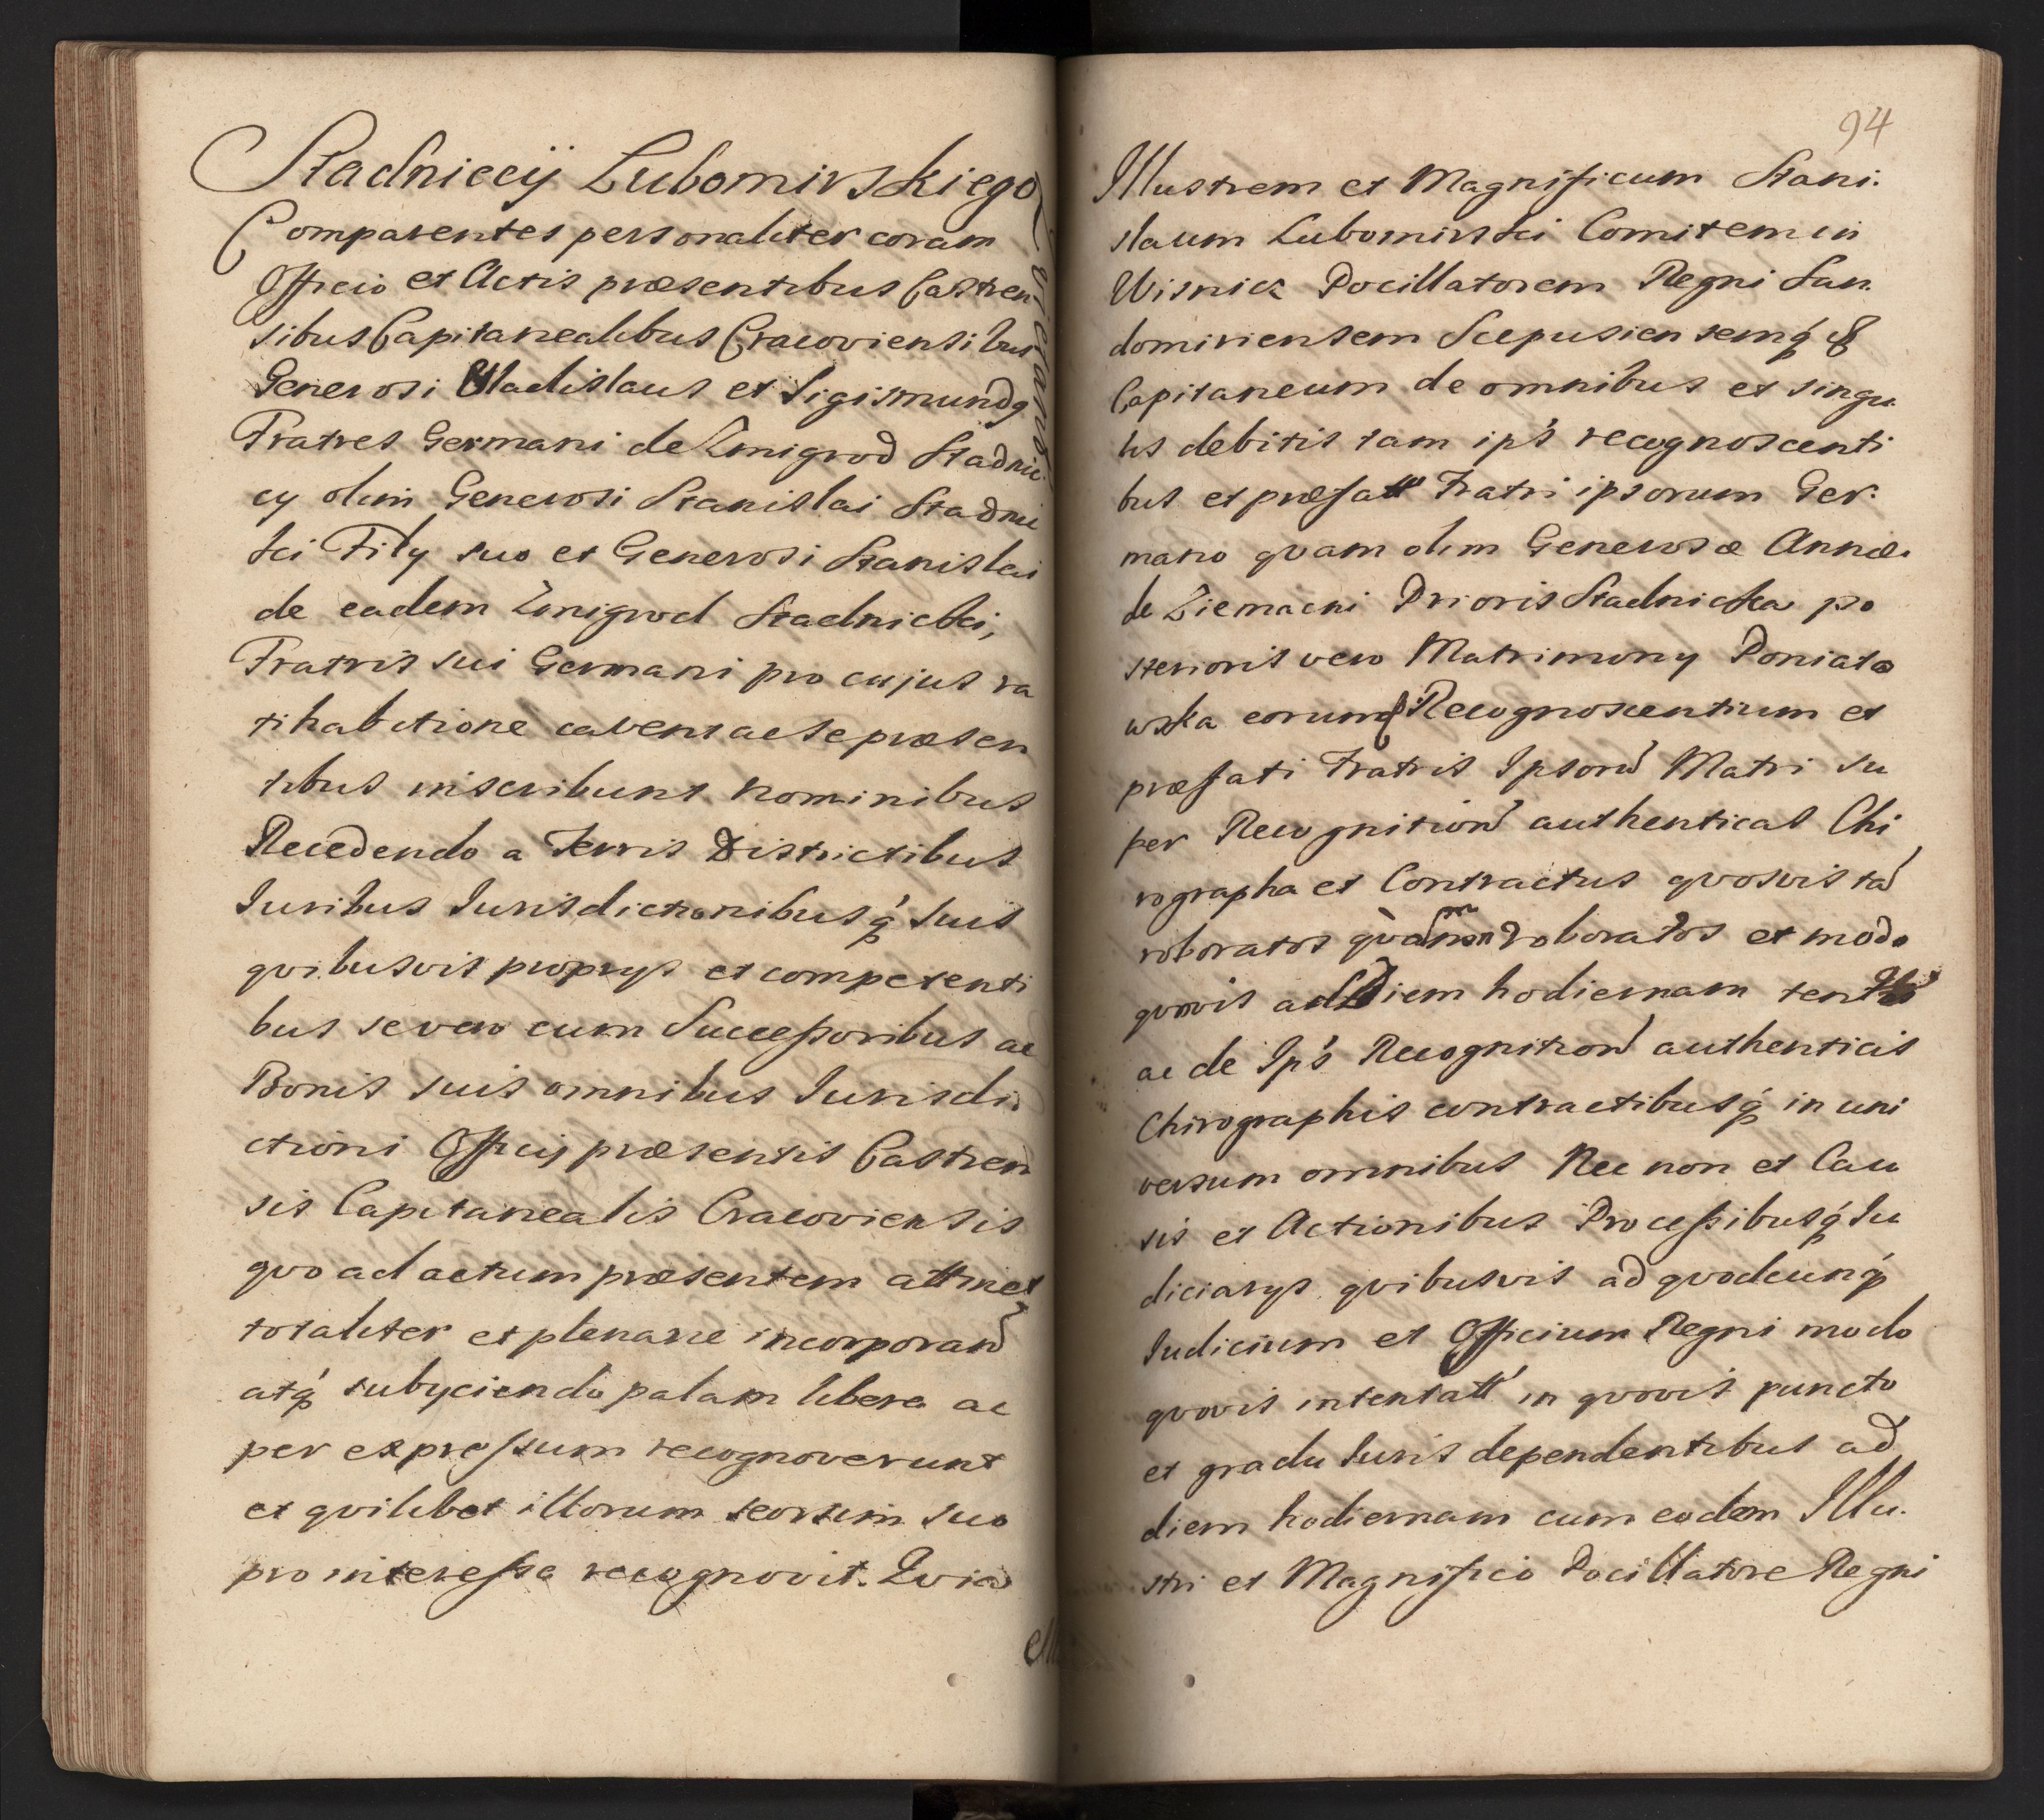 Stadniccÿ Lubomirskiego
kwietują
Comparentes personaliter coram
Officio et Actis præsentibus Castren
sibus Capitanealibus Cracoviensibus
Generosi Uladislaus et Sigismundq
Fratres Germani de Zmigrod Stadnic
cy olim Generosi Stanislai Stadnic
ki Fily suo et Generosi Stanislai
de eadem Zmigrod Stadnicki,
Fratris sui Germani pro cujus ra
tihabitione cavent ac se præsen
tibus inscribunt nominibus
Recedendo a Terris Districtibus
Iuribus Iurisdictionibusq́ suis
qvibusvis proprys et competenti
bus se vero cum Successoribus ac
Bonis suis omnibus Iurisdi.
ctioni Officij præsentis Castren
sis Capitanealis Cracoviensis
qvo ad actum præsentem attinet
totaliter et plenarie incorporand
atq́ subyciendo palam libere ac
per expressum recognoverunt
et qvilibet illorum seorsim suo
pro interesse recognovit. Qvia
Illu
94
Illustrem et Magnificum Stani.
slaum Lubomirski Comitem in
Wisnicz Pocillatorem Regni San.
domiriensem Scepusiensemq́ &
Capitaneum de omnibus et singu.
lis debitis tam ip's recognoscenti
bus et præfato Fratri ipsorum Ger.
mano qvam olim Generosæ Annæ.
de Ziemacni Prioris Stadnicka po
sterioris vero Matrimony Poniato
wska eorund Recognoscentium et
præfati Fratris Ipsorũ Matri su
per Recognitiond authenticas Chi
rographa et Contractus qvosvis tã
roboratos qvam non roboratos et modo
qvovis ad Diem hodiernam tent'
ac de Ip's Recognitiond authenticis
Chirographis contractibusq́ in uni
versum omnibus Nec non et Cau
sis et Actionibus Processibusq́ Iu
diciarys qvibusvis ad qvodcunq́
Iudicium et Officium Regni modo
qvovis intentatt' in qvovis puncto
et gradu Iuris dependentibus ad
diem hodiernam cum eodem Illu.
stri et Magnifico Pocillatore Regni